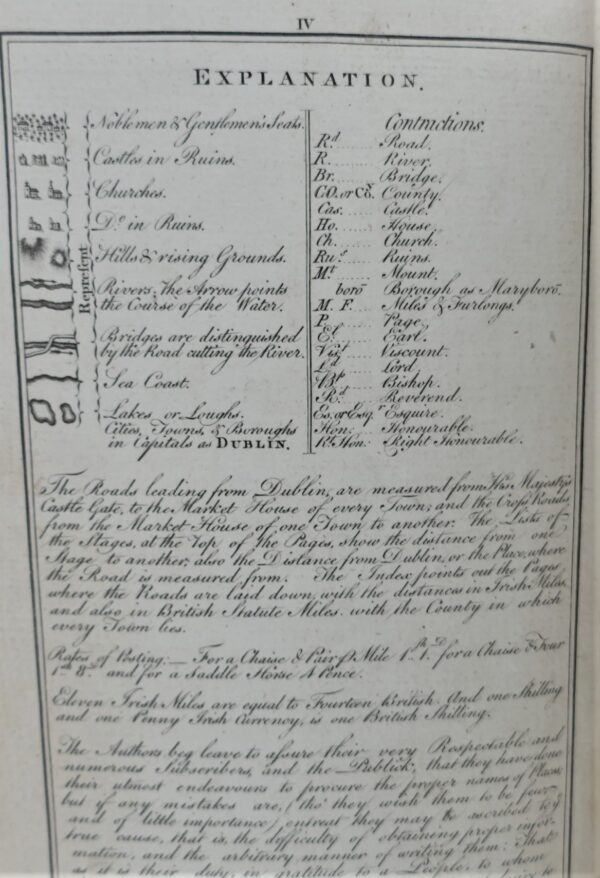 IV
EXPLANATION.
Represent
Noblemen & Gentlemen's Seats.
Castles in Ruins.
Churches.
Dº. in Ruins.
Hills & rising Grounds.
Rivers, the Arrow points
the Course of the Water.
Bridges are distinguished
by the Road cutting the River.
Sea Coast.
Lakes or Loughs.
Cities, Towns, & Boroughs
in Capitals as DUBLIN.
Contractions.
Rd. Road.
R. River.
Br. Bridge.
CO. or Coy. County.
Cas. Castle.
Ho. House.
Ch. Church.
Rus. Ruins.
Mt. Mount.
boro Borough as Maryboro.
M. F. Miles & Furlongs.
P. Page.
El. Earl.
Vist. Viscount.
Ld. Lord.
Bp. Bishop.
Rd. Reverend.
Es. or Esqr. Esquire.
Hon: Honourable.
Rt. Hon: Right Honourable.
The Roads leading from Dublin, are measured from His Majesty's
Castle Gate, to the Market House of every Town; and the Cross Roads,
from the Market House of one Town to another. The Lists of
the Stages, at the Top of the Pages, show the distance from one
Stage to another; also the Distance from Dublin, or the Place, where
the Road is measured from. The Index points out the Pages
where the Roads are laid down, with the distances in Irish Miles,
and also in British Statute Miles. with the County in which
every Town lies.
Rates of Posting:— For a Chaise & Pair p Mile 1sh. 1D. for a Chaise & Four
1sh. 8D. and for a Saddle Horse 4 Pence.
Eleven Irish Miles are equal to Fourteen British. And one Shilling
and one Penny Irish Currency, is one British Shilling.
The Authors beg leave to assure their very Respectable and
numerous Subscribers, and the Publick, that they have done
their utmost endeavours to procure the proper names of Places
but if any mistakes are, (tho' they wish them to be few
and of little importance) entreat they may be ascribed to ye
true cause, that is, the difficulty of obtaining proper infor-
mation, and the arbitrary manner of writing them: That
as it is their duty, in gratitude to a People, to whom